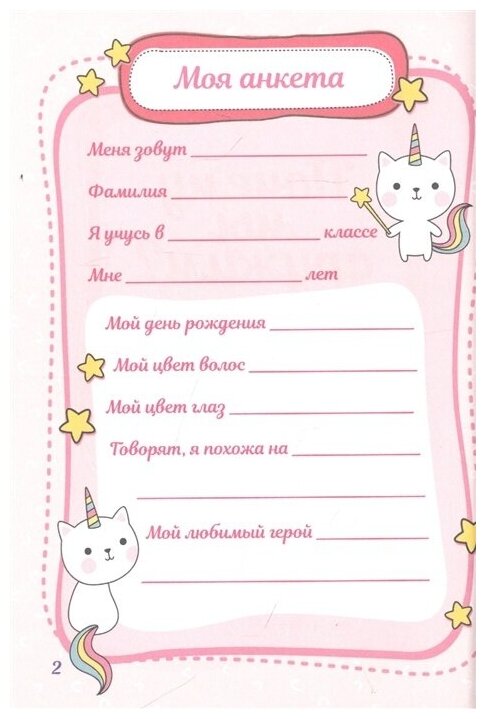 Моя анкета
Меня зовут
Фамилия
Я учусь в классе
Мне лет
Мой день рождения
Мой цвет волос
Мой цвет глаз
Говорят, я похожа на
Мой любимый герой
2